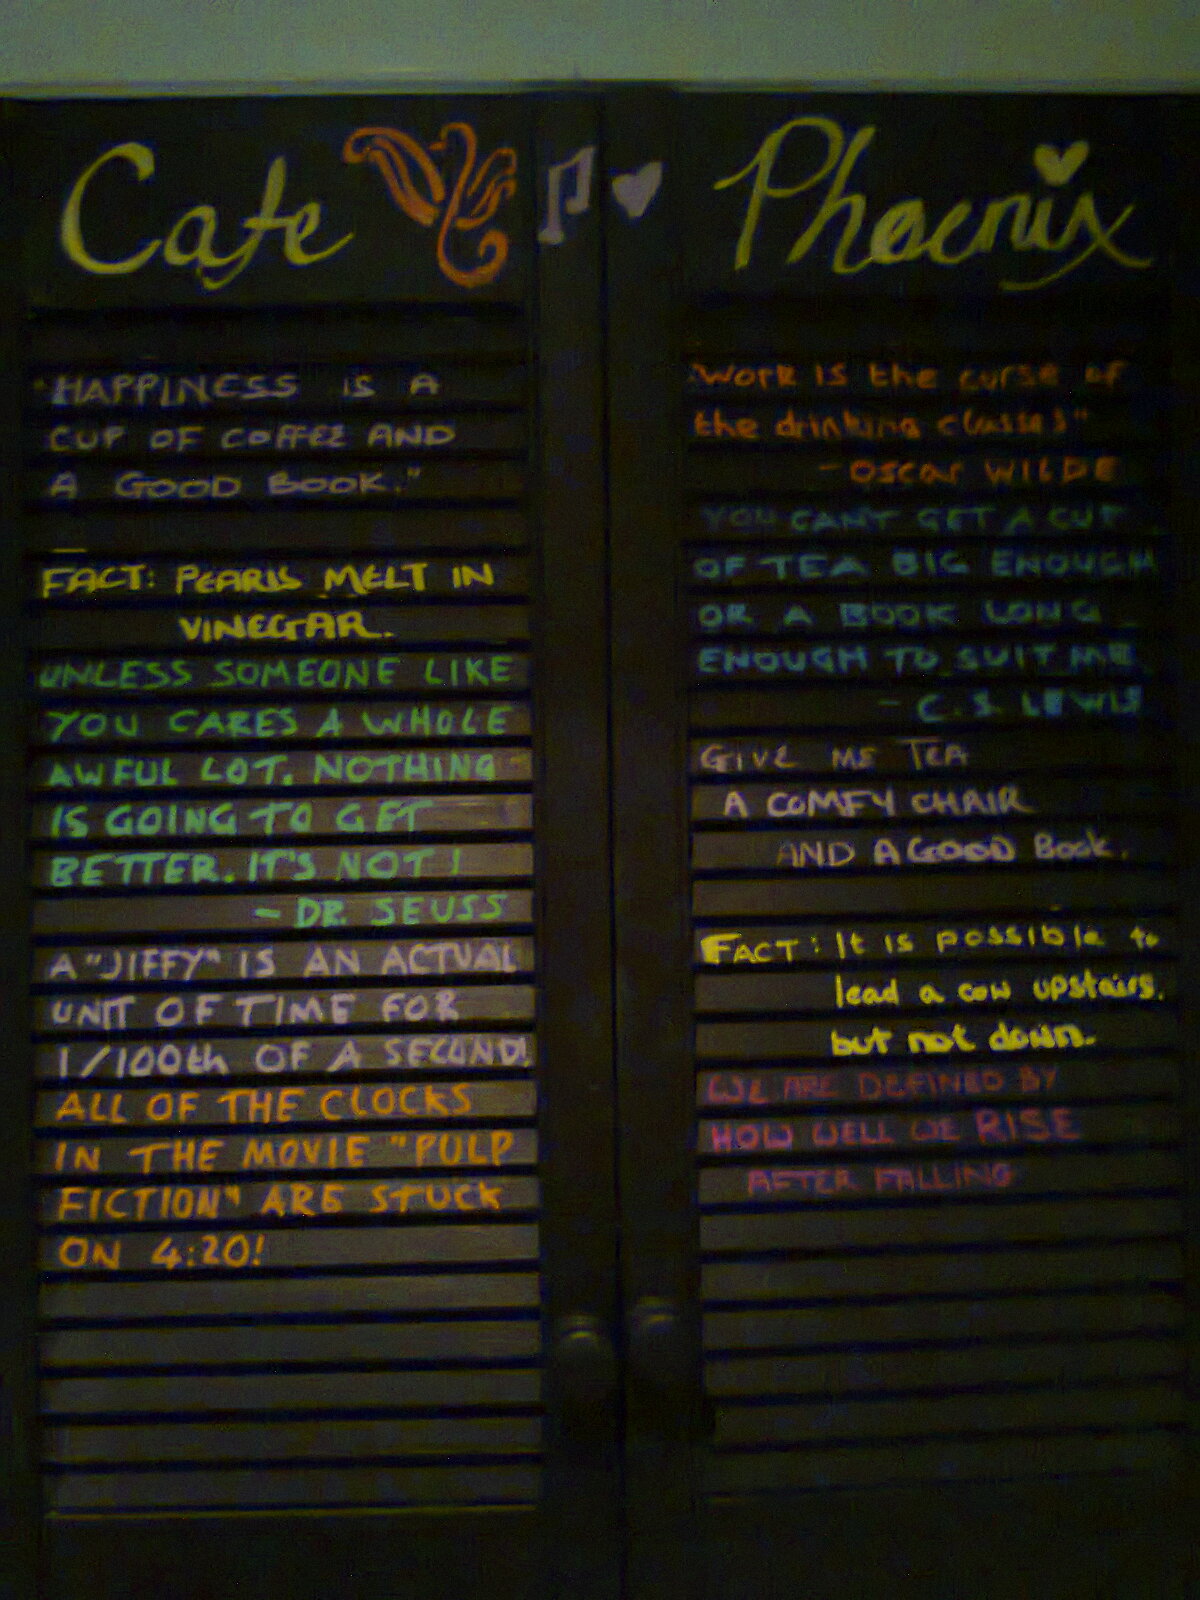 Cafe Phoenix
"HAPPINESS IS A
CUP OF COFFEE AND
A GOOD BOOK."
FACT: PEARLS MELT IN
VINEGAR.
UNLESS SOMEONE LIKE
YOU CARES A WHOLE
AWFUL LOT. NOTHING
IS GOING TO GET
BETTER. IT'S NOT!
- DR. SEUSS
A "JIFFY" IS AN ACTUAL
UNIT OF TIME FOR
1/100th OF A SECOND!
ALL OF THE CLOCKS
IN THE MOVIE "PULP
FICTION" ARE STUCK
ON 4:20!
"Work IS the curse of
the drinking classes"
- OSCAR WILDE
YOU CAN'T GET A CUP
OF TEA BIG ENOUGH
OR A BOOK LONG
ENOUGH TO SUIT ME
- C.S. LEWIS
GIVE ME TEA
A COMFY CHAIR
AND A GOOD Book.
FACT: It is possible to
lead a cow upstairs.
but not down.
WE ARE DEFINED BY
HOW WELL WE RISE
AFTER FALLING